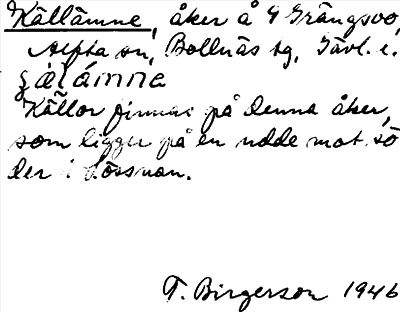 Källämne, åker å 4 Grängsbo,
Alfta sn, Bollnäs tg, Gävl. l.
Källor finnas på denna åker,
som ligger på en udde mot sö
der i Lössnan.
T. Birgerson 1946